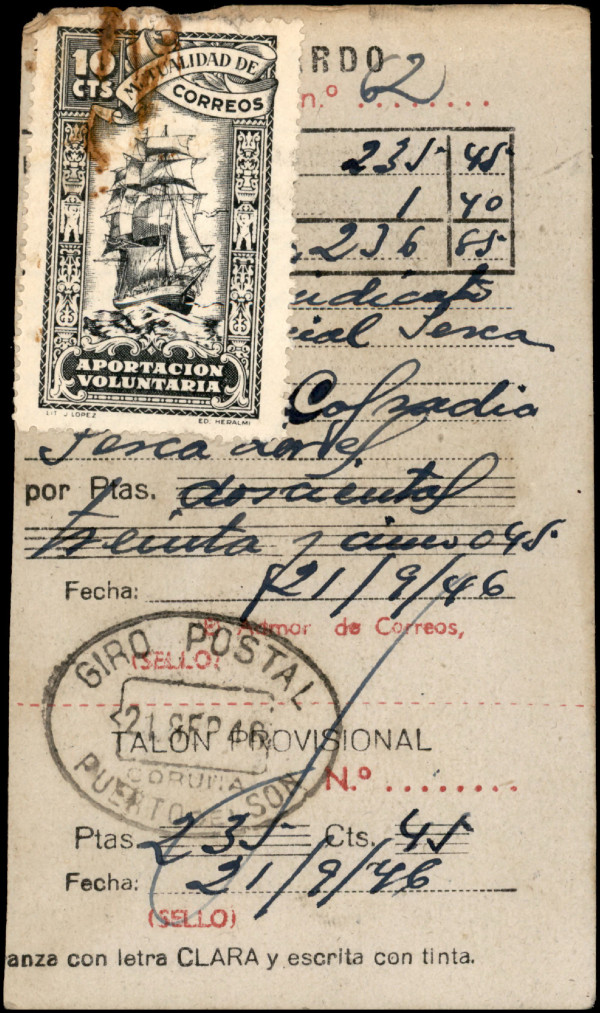 10
CTS
MUTUALIDAD DE
CORREOS
APORTACION
VOLUNTARIA
LIT. J. LOPEZ
ED. HERALMI
RDO
n.º 62
235 45
1 40
236 85
Pesca
Cofradia
Pesca
por Ptas. doscientas
treinta y cinco 45
Fecha: 21/9/46
El Admor de Correos,
(SELLO)
GIRO POSTAL
21 SEP 46
CORUÑA
PUERTO DEL SON
TALÓN PROVISIONAL
N.º
Ptas. 235 Cts. 45
Fecha: 21/9/46
(SELLO)
anza con letra CLARA y escrita con tinta.